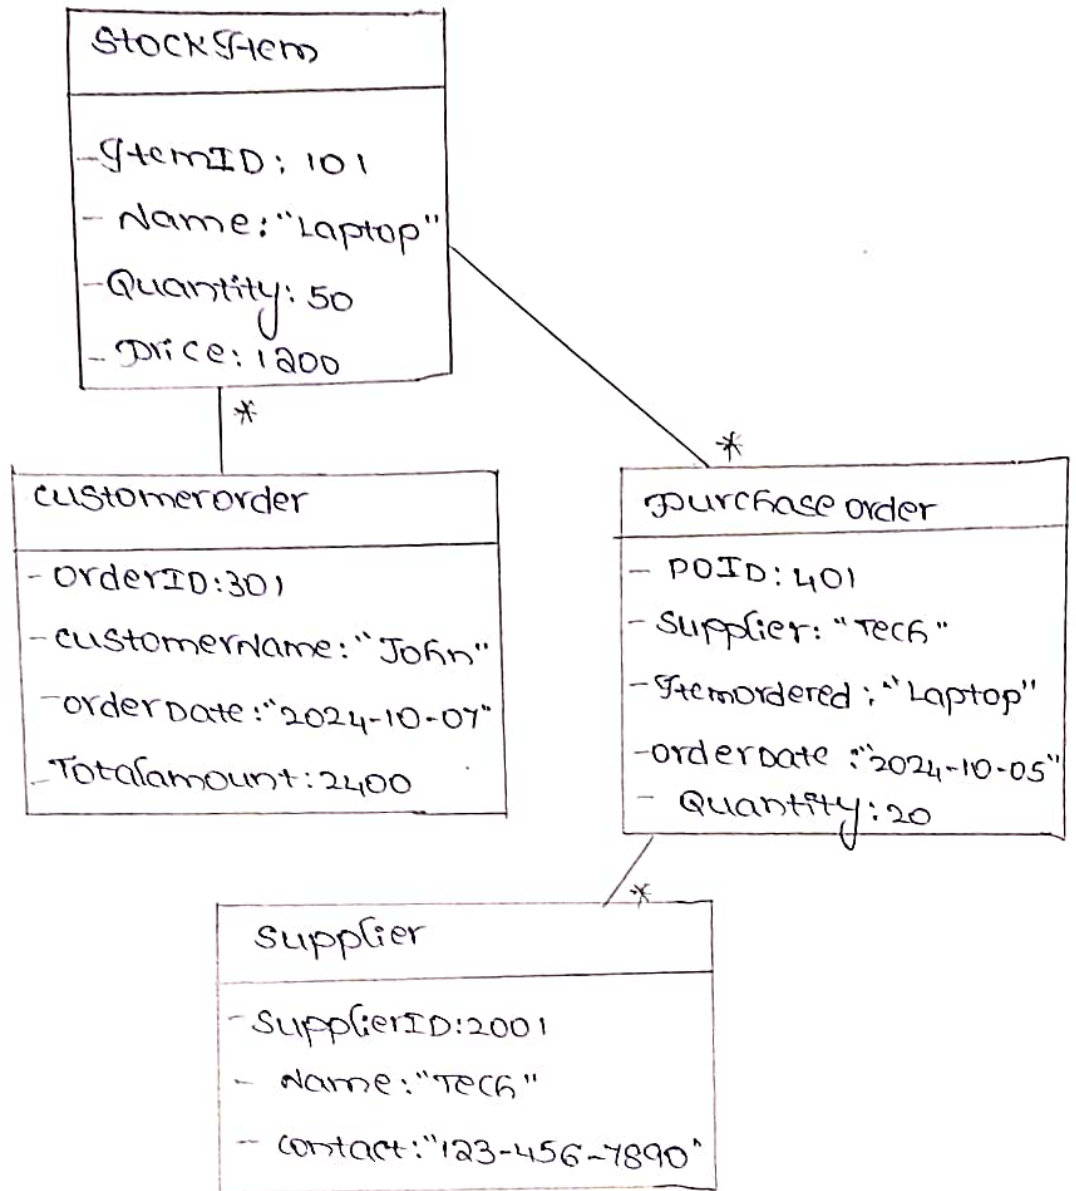 StockItem
- ItemID: 101
- Name: "Laptop"
- Quantity: 50
- Price: 1200
*
*
customerorder
- orderID:301
- customerName: "John"
- orderDate: "2024-10-07"
- Totalamount: 2400
purchase order
- POID: 401
- Supplier: "Tech"
- Itemordered: "Laptop"
- orderDate: "2024-10-05"
- Quantity: 20
*
supplier
- SupplierID:2001
- Name: "Tech"
- contact: "123-456-7890"